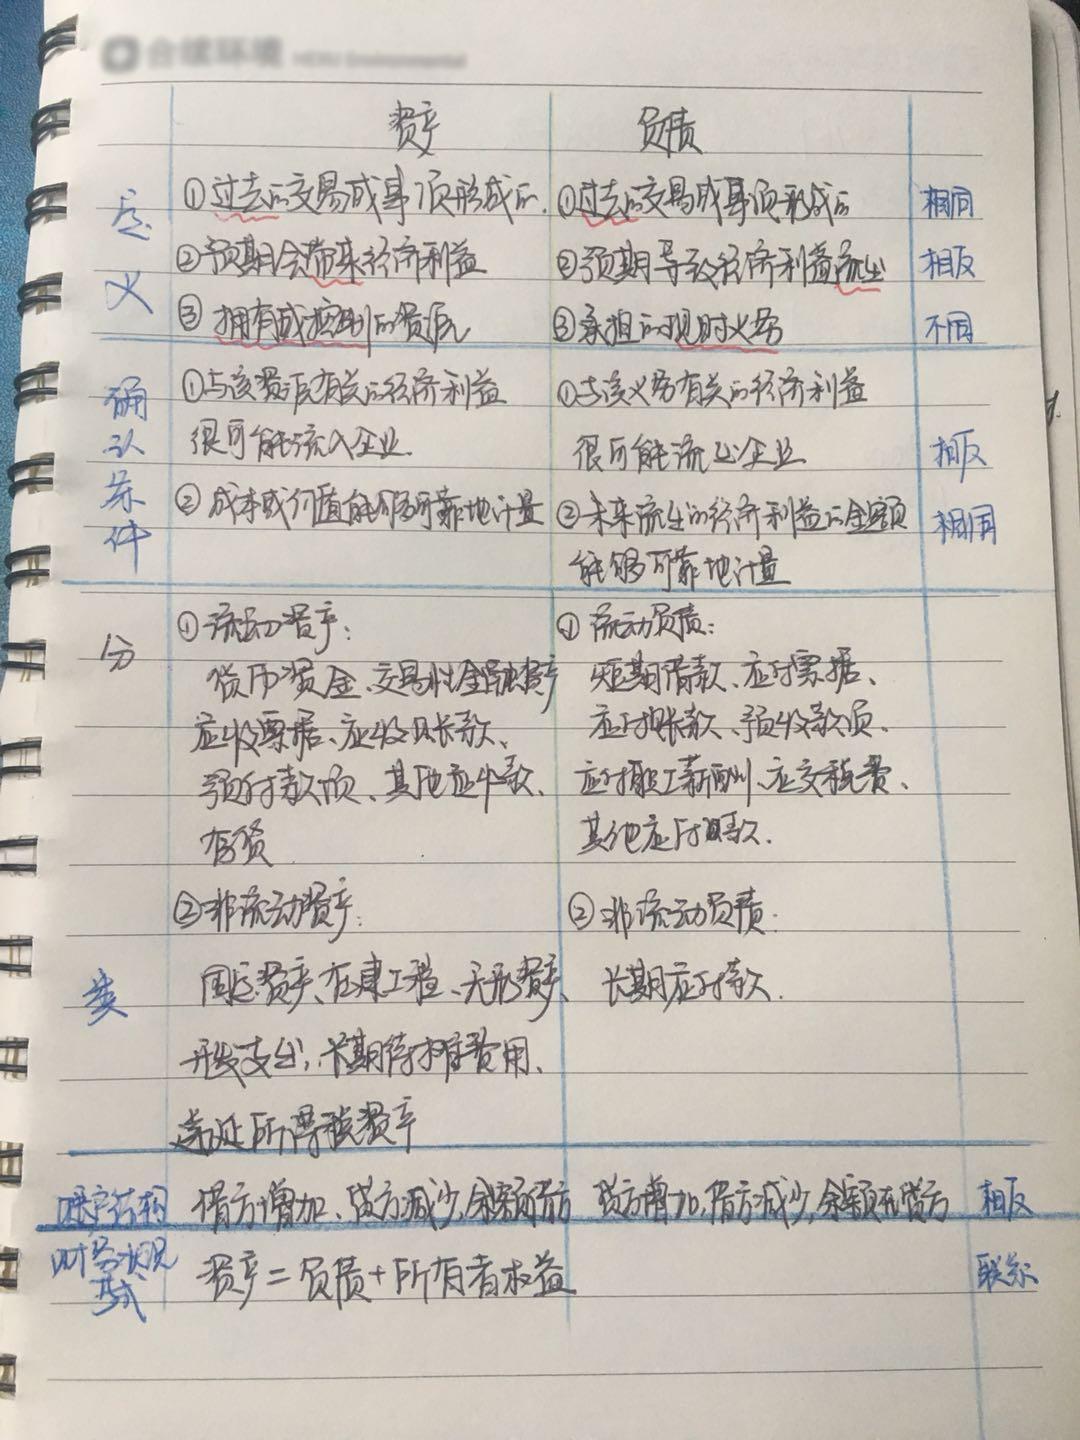 合续环境 HEXU Environmental
资产 负债
定义
①过去的交易或事项形成的. ①过去的交易或事项形成的 相同
②预期会带来经济利益 ②预期导致经济利益流出 相反
③拥有或控制的资源 ③承担的现时义务 不同
确认条件
①与该资源有关的经济利益 ①与该义务有关的经济利益
很可能流入企业. 很可能流出企业 相反
②成本或价值能够可靠地计量 ②未来流出的经济利益的金额 相同
能够可靠地计量
分类
①流动资产: ①流动负债:
货币资金、交易性金融资产 短期借款、应付票据、
应收票据、应收账款、 应付账款、预收款项、
预付款项、其他应收款、 应付职工薪酬、应交税费、
存货 其他应付款.
②非流动资产: ②非流动负债:
固定资产、在建工程、无形资产、 长期应付款.
开发支出、长期待摊费用、
递延所得税资产
账户结构 借方增加、贷方减少,余额在借方 贷方增加,借方减少,余额在贷方 相反
财务状况等式 资产=负债+所有者权益 联系